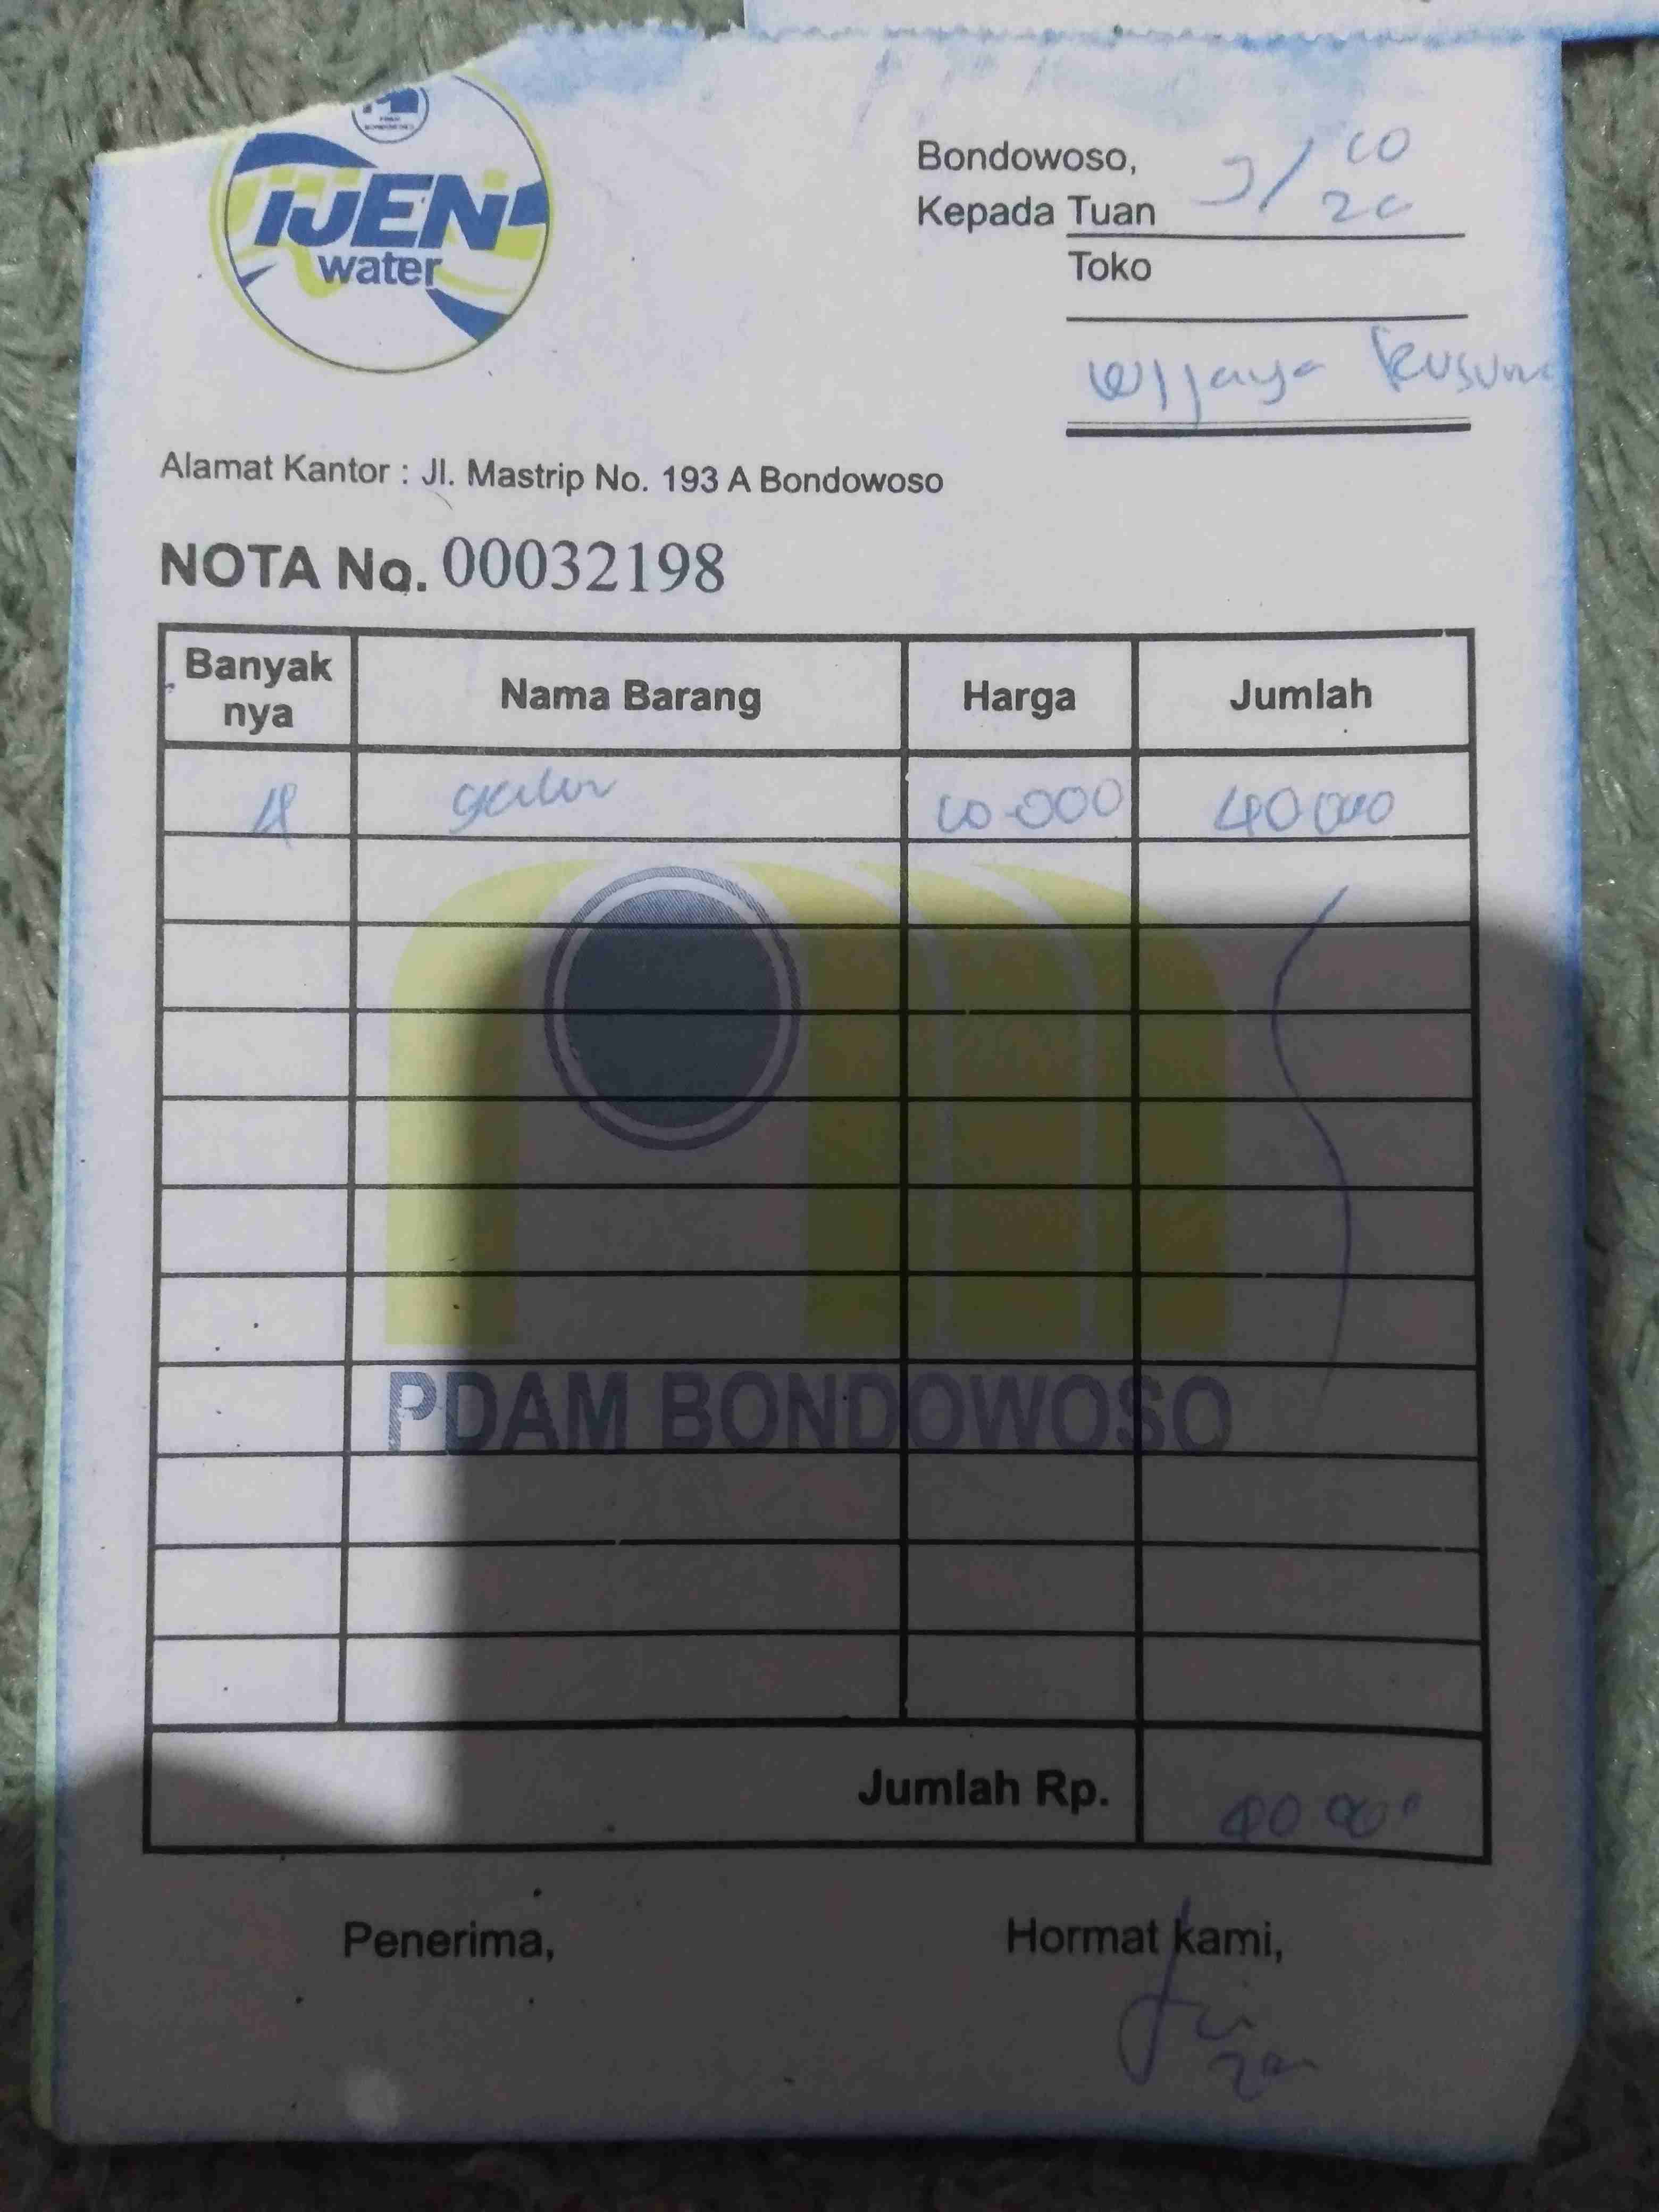 IJEN
water
Bondowoso,
Kepada Tuan
Toko
Wijaya Kusuma
Alamat Kantor : Jl. Mastrip No. 193 A Bondowoso
NOTA No. 00032198
Banyak nya Nama Barang Harga Jumlah
4 galon 10.000 40000
PDAM BONDOWOSO
Jumlah Rp. 40.000
Penerima, Hormat kami,